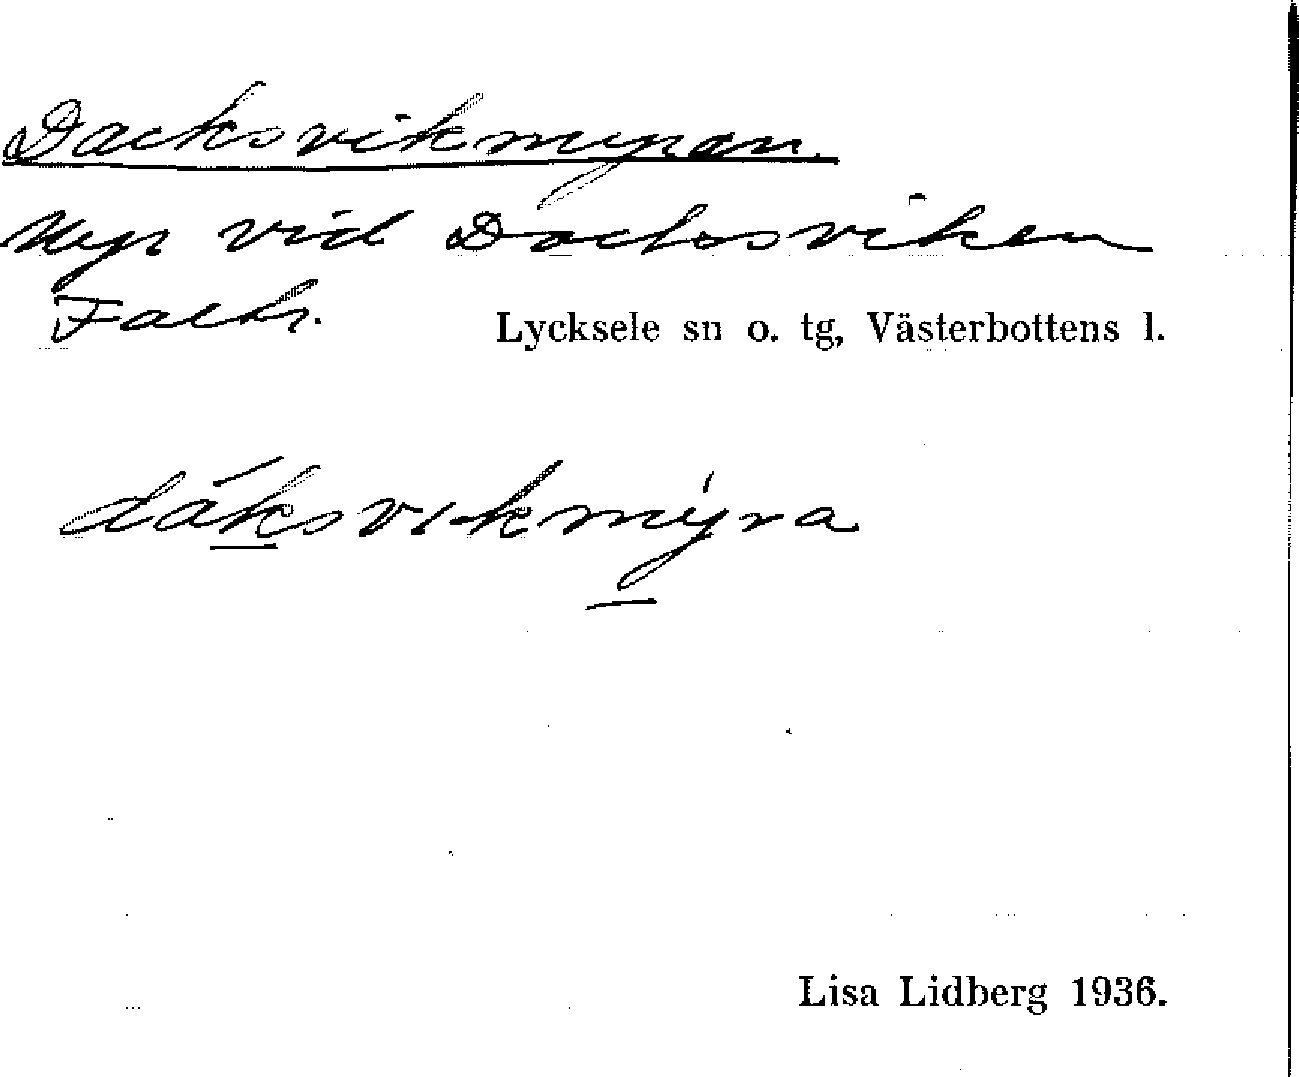 Dacksvikmyran.
Myr vid Dacksviken
Lycksele sn o. tg, Västerbottens l.
dáksvikmýra
Lisa Lidberg 1936.